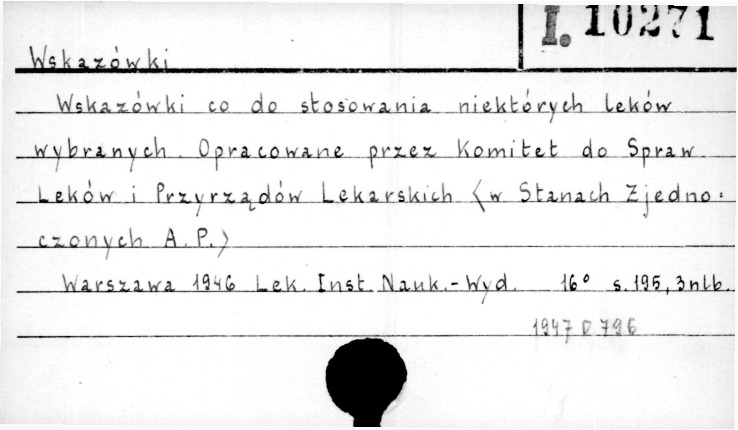 I. 10271
Wskazówki
Wskazówki co do stosowania niektórych leków
wybranych. Opracowane przez Komitet do Spraw
Leków i Przyrządów Lekarskich <w Stanach Zjedno-
czonych A.P.>
Warszawa 1946 Lek. Inst. Nauk.-Wyd. 16° s.195, 3nlb.
1947 D 796